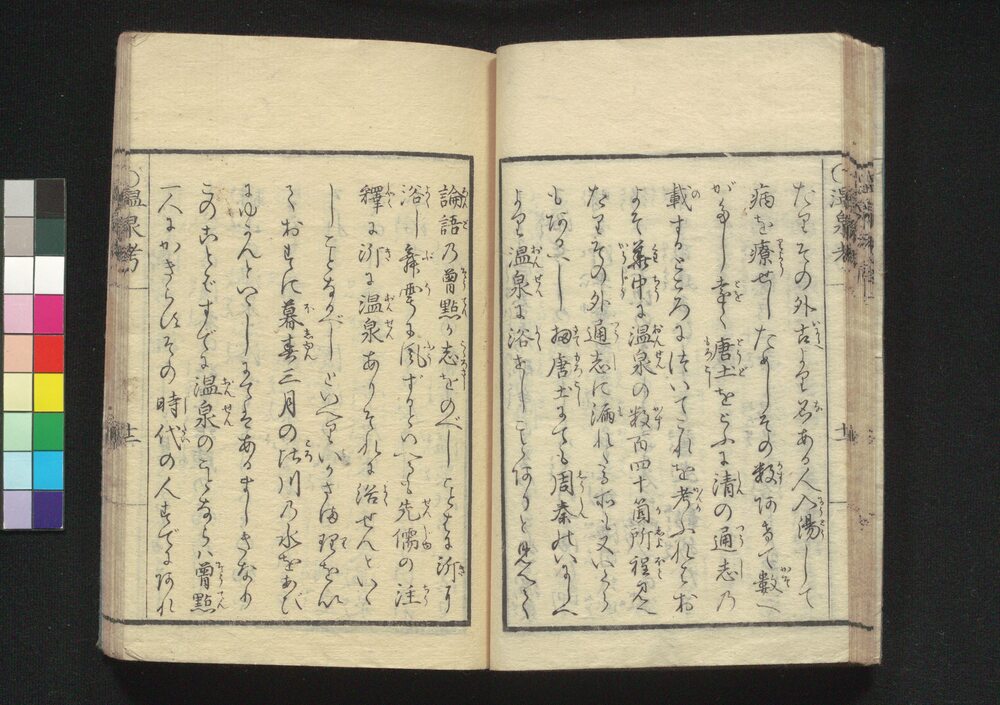 たりその外古より名ある人入湯して
病を療せしためしその数阿またて数へ
がたし遠く唐土をとふに清の通志乃
載するところについてこれを考ふれはお
よそ華中に温泉の数百四十箇所程見へ
たりその外通志に漏れたる所も又いくら
も阿るへし扨唐土にても周秦のいにしへ
より温泉に浴せしこと阿りと見へて
論語乃曾點が志をのべしことばに沂に
浴し舞雩に風すといへるも先儒の注
釋に沂に温泉ありそれに浴せんといひ
しことなるべしといへりいかさま理をもつ
ておすに暮春三月の比川乃水をあび
にゆかんといひしにてはあるまじきなり
このことばすでに温泉のことならハ曾點
一人にかきらすその時代の人すでに阿れ
〇温泉考
十一
〇温泉考
十二